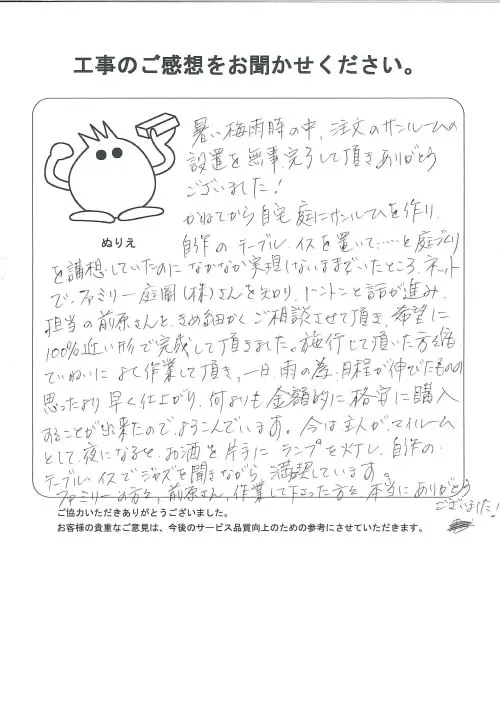 工事のご感想をお聞かせください。
暑い梅雨時の中、注文のサンルームの
設置を無事完了して頂きありがとう
ございました!
かねてから自宅庭にサンルームを作り、
ぬりえ
自作のテーブル、イスを置いて…と庭づくり
を講想していたのになかなか実現しないままでいたところ、ネット
で、ファミリー庭園(株)さんを知り、トントンと話が進み、
担当の前原さんと、きめ細かくご相談させて頂き、希望に
100%近い形で完成して頂きました。施行して頂いた方も
ていねいによく作業して頂き、一日、雨の為、日程が伸びたものの
思ったより早く仕上がり、何よりも金額的に格安に購入
することが出来たので、よろこんでいます。今は主人が、マイルーム
として、夜になると、お酒を片手にランプを灯し、自作の
テーブル、イスでジャズを聞きながら満喫しています。
ファミリーの方々、前原さん、作業して下さった方々、本当にありがとう
ございました!
ご協力いただきありがとうございました。
お客様の貴重なご意見は、今後のサービス品質向上のための参考にさせていただきます。